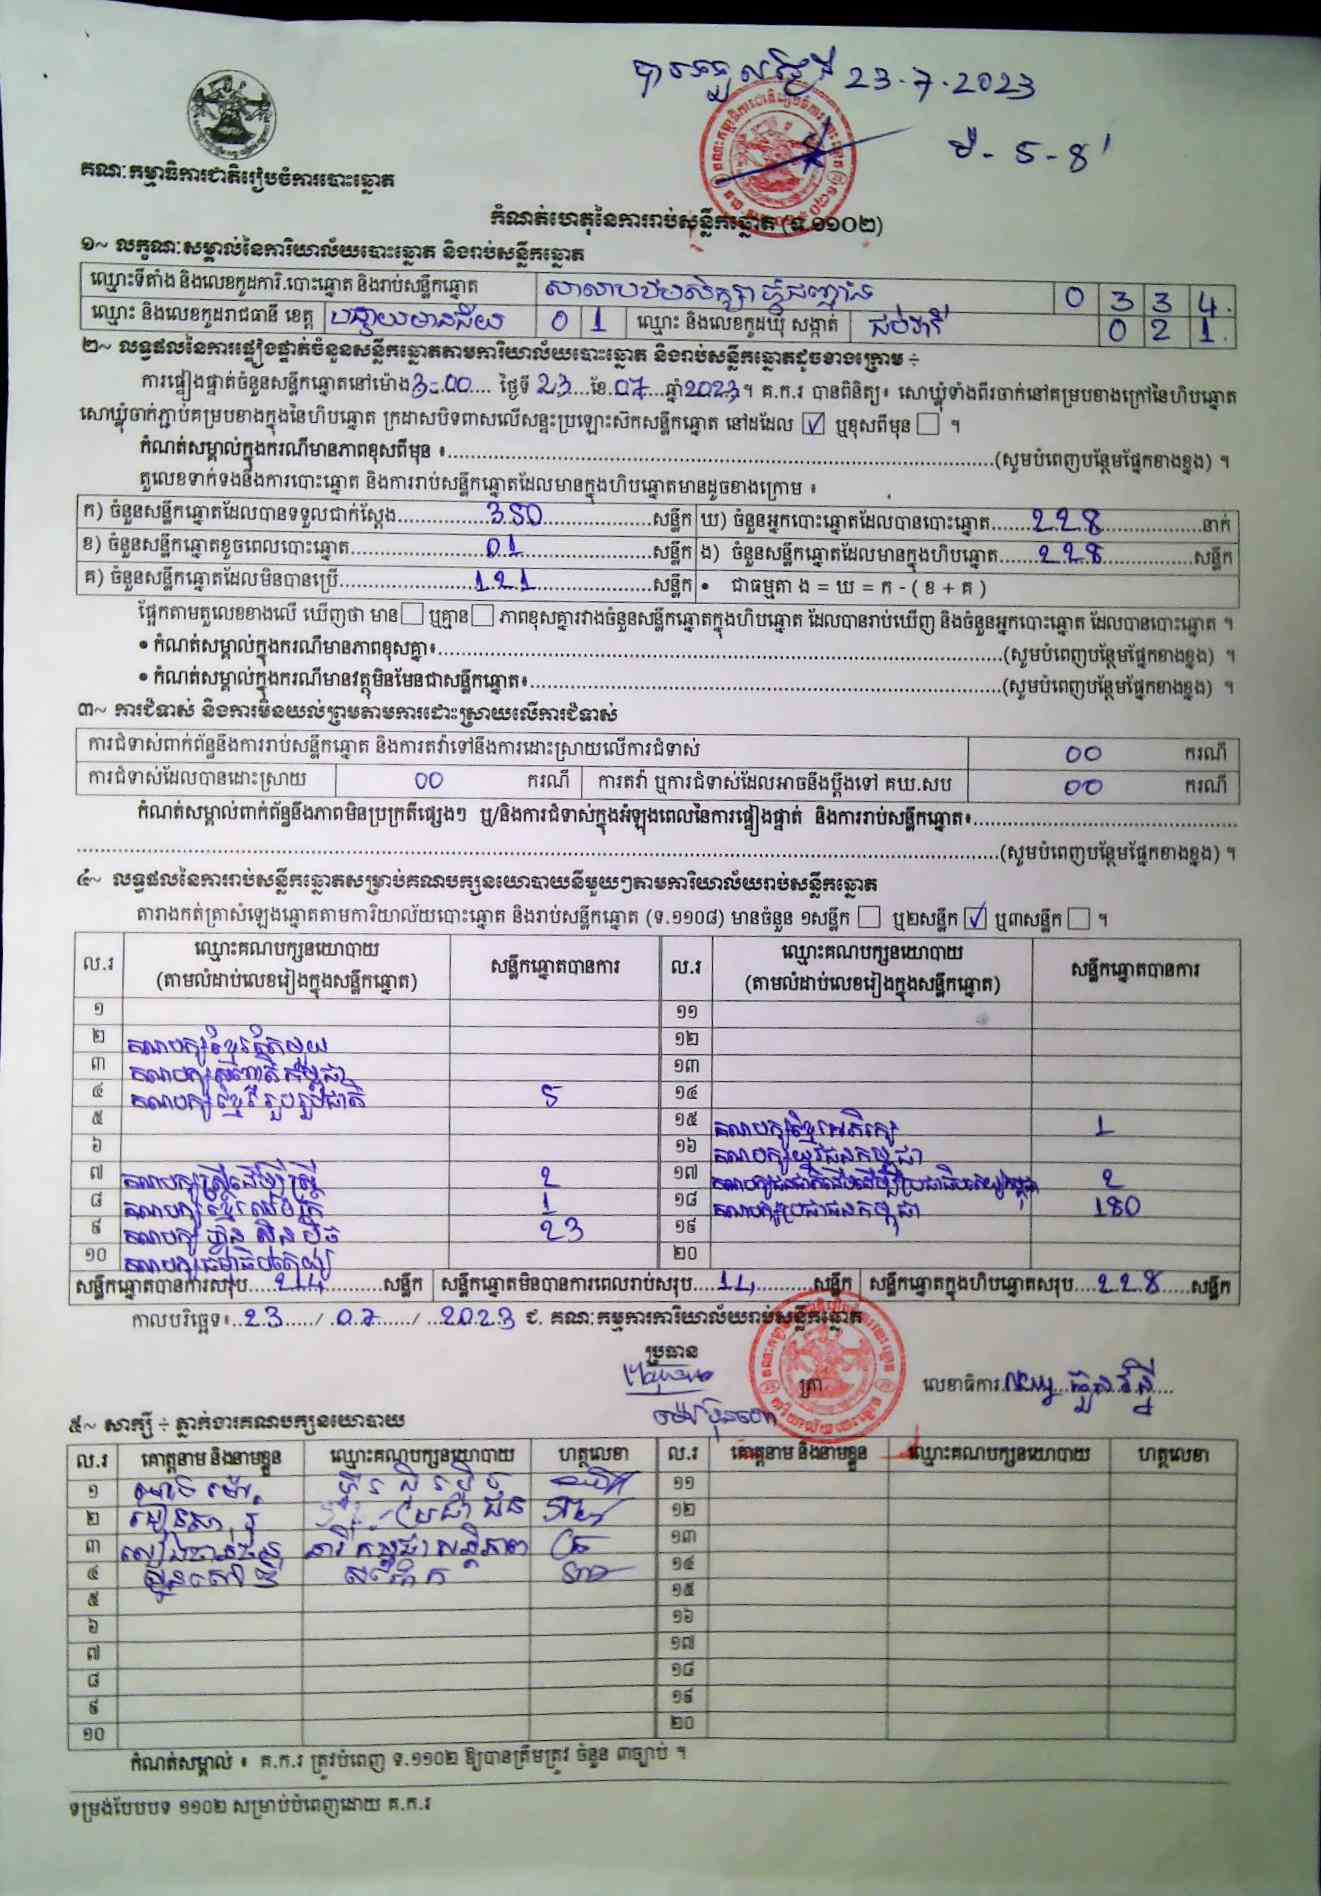 បានទទួលថ្ងៃទី 23.7.2023
ម៉ - 5 - 8'
គណៈកម្មាធិការជាតិរៀបចំការបោះឆ្នោត
កំណត់ហេតុនៃការរាប់សន្លឹកឆ្នោត (ទ.១១០២)
១~ លក្ខណៈសម្គាល់នៃការិយាល័យបោះឆ្នោត និងរាប់សន្លឹកឆ្នោត
ឈ្មោះទីតាំង និងលេខកូដការិ.បោះឆ្នោត និងរាប់សន្លឹកឆ្នោត សាលាបឋមសិក្សា 0 3 3 4.
ឈ្មោះ និងលេខកូដរាជធានី ខេត្ត បន្ទាយមានជ័យ 0 1 ឈ្មោះ និងលេខកូដឃុំ សង្កាត់ ជប់វារី 0 2 1.
២~ លទ្ធផលនៃការផ្ទៀងផ្ទាត់ចំនួនសន្លឹកឆ្នោតតាមការិយាល័យបោះឆ្នោត និងរាប់សន្លឹកឆ្នោតដូចខាងក្រោម ÷
ការផ្ទៀងផ្ទាត់ចំនួនសន្លឹកឆ្នោតនៅម៉ោង 3-00 .... ថ្ងៃទី 23 ....ខែ 07 ....ឆ្នាំ 2023 ។ គ.ក.រ បានពិនិត្យ៖ សោឃ្លុំទាំងពីរចាក់នៅគម្របខាងក្រៅនៃហិបឆ្នោត
សោឃ្លុំចាក់ភ្ជាប់គម្របខាងក្នុងនៃហិបឆ្នោត ក្រដាសបិទពាសលើសន្ទះប្រឡោះស៊កសន្លឹកឆ្នោត នៅដដែល ☑ ឬខុសពីមុន ☐ ។
កំណត់សម្គាល់ក្នុងករណីមានភាពខុសពីមុន ៖....................(សូមបំពេញបន្ថែមផ្នែកខាងខ្នង) ។
តួលេខទាក់ទងនឹងការបោះឆ្នោត និងការរាប់សន្លឹកឆ្នោតដែលមានក្នុងហិបឆ្នោតមានដូចខាងក្រោម ៖
ក) ចំនួនសន្លឹកឆ្នោតដែលបានទទួលជាក់ស្តែង.......... 350 ..........សន្លឹក ឃ) ចំនួនអ្នកបោះឆ្នោតដែលបានបោះឆ្នោត...... 228 ..........នាក់
ខ) ចំនួនសន្លឹកឆ្នោតខូចពេលបោះឆ្នោត.......... 01 ..........សន្លឹក ង) ចំនួនសន្លឹកឆ្នោតដែលមានក្នុងហិបឆ្នោត...... 228 ..........សន្លឹក
គ) ចំនួនសន្លឹកឆ្នោតដែលមិនបានប្រើ.......... 121 ..........សន្លឹក • ជាធម្មតា ង = ឃ = ក - ( ខ + គ )
ផ្អែកតាមតួលេខខាងលើ ឃើញថា មាន ☐ ឬគ្មាន ☐ ភាពខុសគ្នារវាងចំនួនសន្លឹកឆ្នោតក្នុងហិបឆ្នោត ដែលបានរាប់ឃើញ និងចំនួនអ្នកបោះឆ្នោត ដែលបានបោះឆ្នោត ។
• កំណត់សម្គាល់ក្នុងករណីមានភាពខុសគ្នា៖....................(សូមបំពេញបន្ថែមផ្នែកខាងខ្នង) ។
• កំណត់សម្គាល់ក្នុងករណីមានវត្ថុមិនមែនជាសន្លឹកឆ្នោត៖....................(សូមបំពេញបន្ថែមផ្នែកខាងខ្នង) ។
៣~ ការជំទាស់ និងការមិនយល់ព្រមតាមការដោះស្រាយលើការជំទាស់
ការជំទាស់ពាក់ព័ន្ធនឹងការរាប់សន្លឹកឆ្នោត និងការតវ៉ាទៅនឹងការដោះស្រាយលើការជំទាស់ 00 ករណី
ការជំទាស់ដែលបានដោះស្រាយ 00 ករណី ការតវ៉ា ឬការជំទាស់ដែលអាចនឹងប្តឹងទៅ គឃ.សប 00 ករណី
កំណត់សម្គាល់ពាក់ព័ន្ធនឹងភាពមិនប្រក្រតីផ្សេងៗ ឬ/និងការជំទាស់ក្នុងអំឡុងពេលនៃការផ្ទៀងផ្ទាត់ និងការរាប់សន្លឹកឆ្នោត៖....................
....................(សូមបំពេញបន្ថែមផ្នែកខាងខ្នង) ។
៤~ លទ្ធផលនៃការរាប់សន្លឹកឆ្នោតសម្រាប់គណបក្សនយោបាយនីមួយៗតាមការិយាល័យរាប់សន្លឹកឆ្នោត
តារាងកត់ត្រាសំឡេងឆ្នោតតាមការិយាល័យបោះឆ្នោត និងរាប់សន្លឹកឆ្នោត (ទ.១១០៨) មានចំនួន ១សន្លឹក ☐ ឬ២សន្លឹក ☑ ឬ៣សន្លឹក ☐ ។
ល.រ ឈ្មោះគណបក្សនយោបាយ (តាមលំដាប់លេខរៀងក្នុងសន្លឹកឆ្នោត) សន្លឹកឆ្នោតបានការ ល.រ ឈ្មោះគណបក្សនយោបាយ (តាមលំដាប់លេខរៀងក្នុងសន្លឹកឆ្នោត) សន្លឹកឆ្នោតបានការ
១ ១១
២ គណបក្សខ្មែរតែមួយ ១២
៣ គណបក្ស ១៣
៤ គណបក្សខ្មែររួបរួមជាតិ 5 ១៤
៥ ១៥ គណបក្សខ្មែរអភិរក្ស 1
៦ ១៦ គណបក្សយុវជនកម្ពុជា
៧ គណបក្សស្ត្រីដើម្បីស្ត្រី 2 ១៧ គណបក្សជនជាតិដើមដើម្បីប្រជាធិបតេយ្យកម្ពុជា 2
៨ គណបក្សខ្មែរ 1 ១៨ គណបក្សប្រជាជនកម្ពុជា 180
៩ គណបក្ស ហ៊្វុនស៊ិនប៉ិច 23 ១៩
១០ គណបក្សធម្មាធិបតេយ្យ ២០
សន្លឹកឆ្នោតបានការសរុប..... 214 ..........សន្លឹក សន្លឹកឆ្នោតមិនបានការពេលរាប់សរុប.... 14 ..........សន្លឹក សន្លឹកឆ្នោតក្នុងហិបឆ្នោតសរុប.... 228 .....សន្លឹក
កាលបរិច្ឆេទ៖.. 23 ...../ .07 ....../ ..2023 ជ. គណៈកម្មការការិយាល័យរាប់សន្លឹកឆ្នោត
ប្រធាន
ត្រា លេខាធិការ
៥~ សាក្សី ÷ ភ្នាក់ងារគណបក្សនយោបាយ
ល.រ គោត្តនាម និងនាមខ្លួន ឈ្មោះគណបក្សនយោបាយ ហត្ថលេខា ល.រ គោត្តនាម និងនាមខ្លួន ឈ្មោះគណបក្សនយោបាយ ហត្ថលេខា
១ ១១
២ ប្រជាជន ១២
៣ ១៣
៤ ១៤
៥ ១៥
៦ ១៦
៧ ១៧
៨ ១៨
៩ ១៩
១០ ២០
កំណត់សម្គាល់ ៖ គ.ក.រ ត្រូវបំពេញ ទ.១១០២ ឱ្យបានត្រឹមត្រូវ ចំនួន ៣ច្បាប់ ។
ទម្រង់បែបបទ ១១០២ សម្រាប់បំពេញដោយ គ.ក.រ